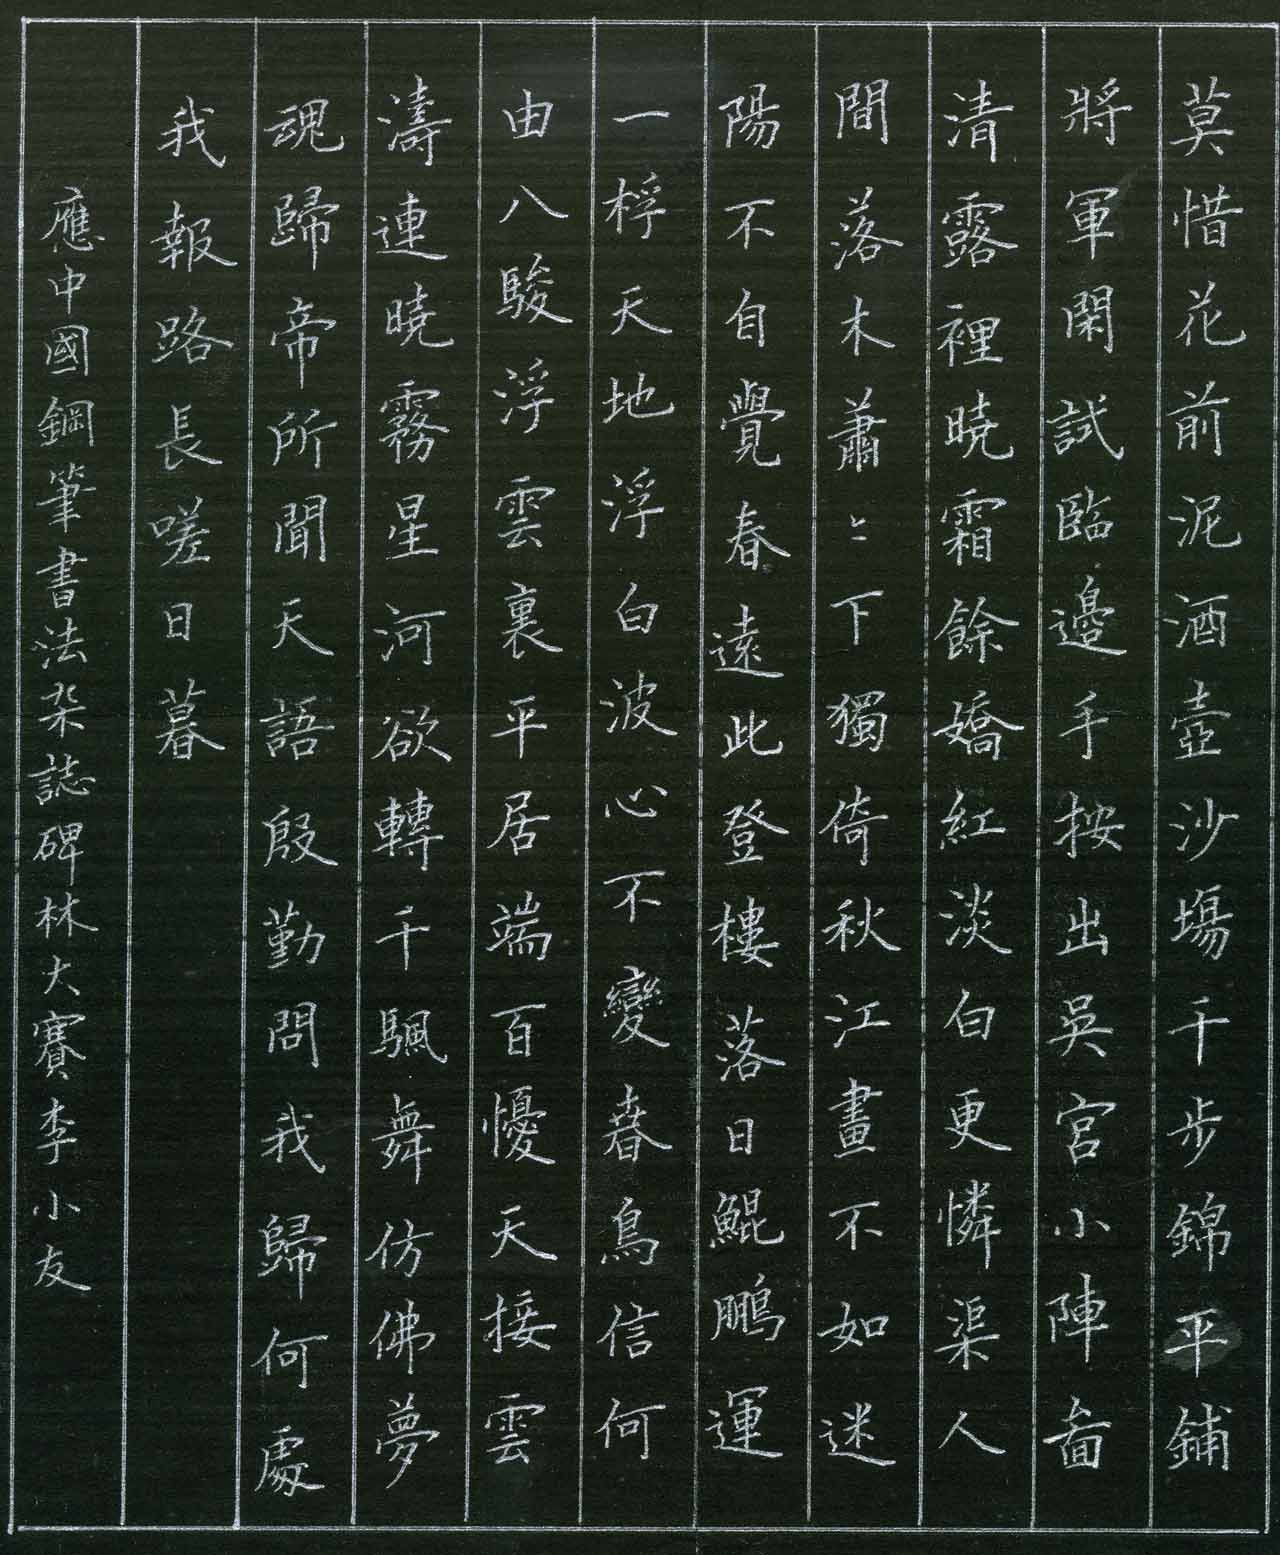 莫惜花前泥酒壺沙場千步錦平鋪
將軍閑試臨邊手按出吳宮小陣畵
清露裡曉霜餘嬌紅淡白更憐渠人
間落木蕭〻下獨倚秋江畫不如迷
陽不自覺春遠此登樓落日鯤鵬運
一桴天地浮白波心不變春鳥信何
由八駿浮雲裏平居端百憂天接雲
濤連曉霧星河欲轉千颿舞仿佛夢
魂歸帝所聞天語殷勤問我歸何處
我報路長嗟日暮
應中國鋼筆書法杂誌碑林大賽李小友